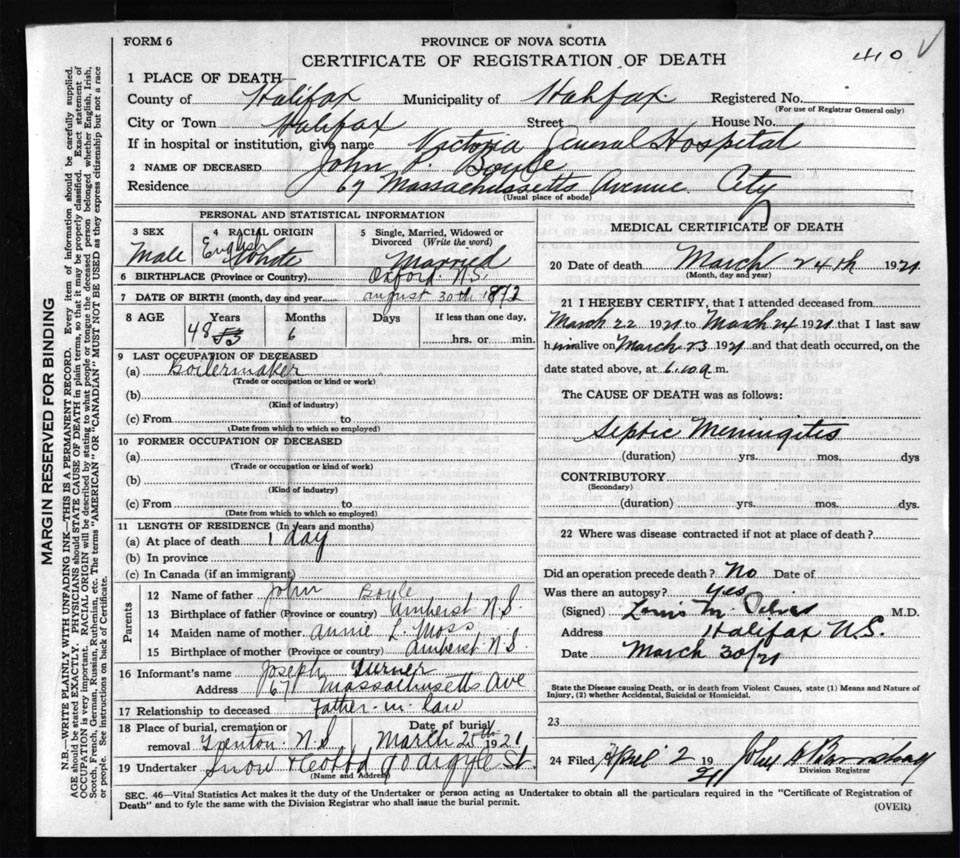 FORM 6
PROVINCE OF NOVA SCOTIA
CERTIFICATE OF REGISTRATION OF DEATH
410 √
1 PLACE OF DEATH—
County of Halifax Municipality of Halifax Registered No.
(For use of Registrar General only)
City or Town Halifax Street House No.
If in hospital or institution, give name Victoria General Hospital
2 NAME OF DECEASED John P. Boyle
Residence 67 Massachussetts Avenue. City
(Usual place of abode)
PERSONAL AND STATISTICAL INFORMATION
3 SEX
Male
4 RACIAL ORIGIN
English
White
5 Single, Married, Widowed or
Divorced (Write the word)
Married
6 BIRTHPLACE (Province or Country) Oxford N.S.
7 DATE OF BIRTH (month, day and year) August 30th 1872
8 AGE Years Months Days If less than one day,
48 53 6 hrs. or min.
9 LAST OCCUPATION OF DECEASED
(a) Boilermaker
(Trade or occupation or kind or work)
(b)
(Kind of industry)
(c) From to
(Date from which to which so employed)
10 FORMER OCCUPATION OF DECEASED
(a)
(Trade or occupation or kind of work)
(b)
(Kind of industry)
(c) From to
(Date from which to which so employed)
11 LENGTH OF RESIDENCE (In years and months)
(a) At place of death 1 day
(b) In province
(c) In Canada (if an immigrant)
Parents
12 Name of father John Boyle
13 Birthplace of father (Province or country) Amherst N.S
14 Maiden name of mother Annie L. Moss
15 Birthplace of mother (Province or country) Amherst N.S
16 Informant's name Joseph Turner
Address 67 Massachusetts Ave
17 Relationship to deceased Father-in-law
18 Place of burial, cremation or
removal Trenton N.S
Date of burial
March 25th 1921
19 Undertaker Snow & Co 90 Argyle St.
(Name and Address)
MEDICAL CERTIFICATE OF DEATH
20 Date of death March 24th 1921
(Month, day and year)
21 I HEREBY CERTIFY, that I attended deceased from
March 22 1921 to March 24 1921 that I last saw
him alive on March 23 1921 and that death occurred, on the
date stated above, at 6.10 a.m.
The CAUSE OF DEATH was as follows:
Septic Meningitis
(duration) yrs. mos. dys
CONTRIBUTORY
(Secondary)
(duration) yrs. mos. dys.
22 Where was disease contracted if not at place of death?
Did an operation precede death? No Date of
Was there an autopsy? Yes
(Signed) Louis M. M.D.
Address Halifax N.S.
Date March 30/21
State the Disease causing Death, or in death from Violent Causes, state (1) Means and Nature of
Injury, (2) whether Accidental, Suicidal or Homicidal.
23
24 Filed April 2 1921 John
Division Registrar
SEC. 46—Vital Statistics Act makes it the duty of the Undertaker or person acting as Undertaker to obtain all the particulars required in the "Certificate of Registration of
Death" and to fyle the same with the Division Registrar who shall issue the burial permit.
(OVER)
MARGIN RESERVED FOR BINDING
N.B.—WRITE PLAINLY WITH UNFADING INK—THIS IS A PERMANENT RECORD. Every item of information should be carefully supplied.
AGE should be stated EXACTLY. PHYSICIANS should STATE CAUSE OF DEATH in plain terms, so that it may be properly classified. Exact statement of
OCCUPATION is very important. RACIAL ORIGIN will be described by stating to what people or tongue the deceased person belonged, whether English, Irish,
Scotch, French, German, Russian, Ruthenian, etc. The terms "AMERICAN" OR "CANADIAN" MUST NOT BE USED as they express citizenship but not a race
or people. See instructions on back of Certificate.